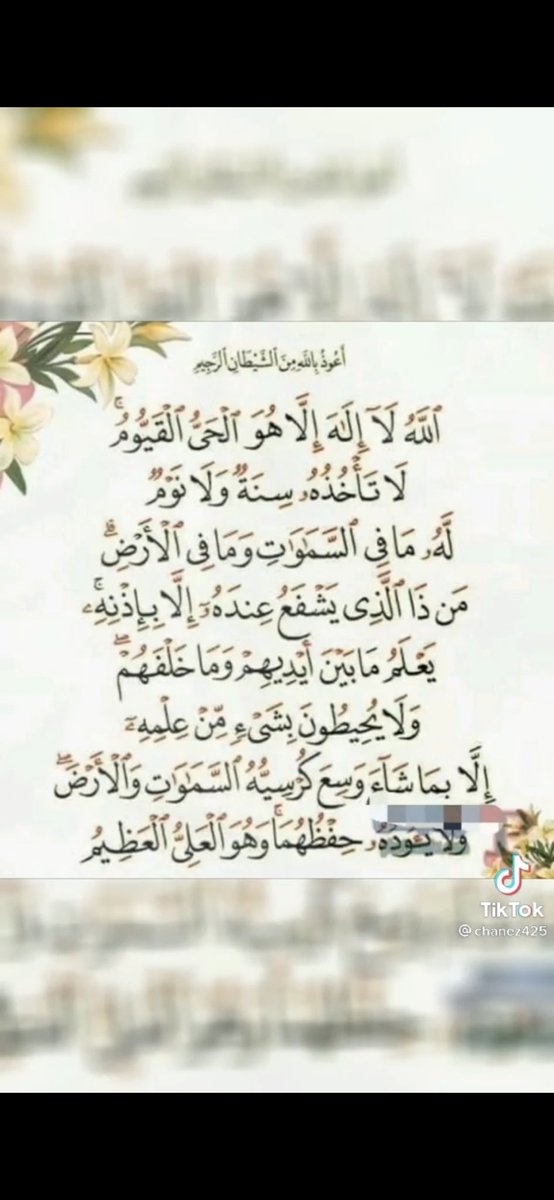 أَعُوذُ بِاللَّهِ مِنَ ٱلشَّيْطَانِ ٱلرَّجِيمِ
ٱللَّهُ لَآ إِلَٰهَ إِلَّا هُوَ ٱلْحَىُّ ٱلْقَيُّومُ ۚ
لَا تَأْخُذُهُۥ سِنَةٌ وَلَا نَوْمٌ
لَّهُۥ مَا فِى ٱلسَّمَٰوَٰتِ وَمَا فِى ٱلْأَرْضِ ۗ
مَن ذَا ٱلَّذِى يَشْفَعُ عِندَهُۥٓ إِلَّا بِإِذْنِهِۦ ۚ
يَعْلَمُ مَا بَيْنَ أَيْدِيهِمْ وَمَا خَلْفَهُمْ ۖ
وَلَا يُحِيطُونَ بِشَىْءٍ مِّنْ عِلْمِهِۦٓ
إِلَّا بِمَا شَآءَ وَسِعَ كُرْسِيُّهُ ٱلسَّمَٰوَٰتِ وَٱلْأَرْضَ ۖ
وَلَا يَـُٔودُهُۥ حِفْظُهُمَا ۚ وَهُوَ ٱلْعَلِىُّ ٱلْعَظِيمُ
TikTok
@chanez425